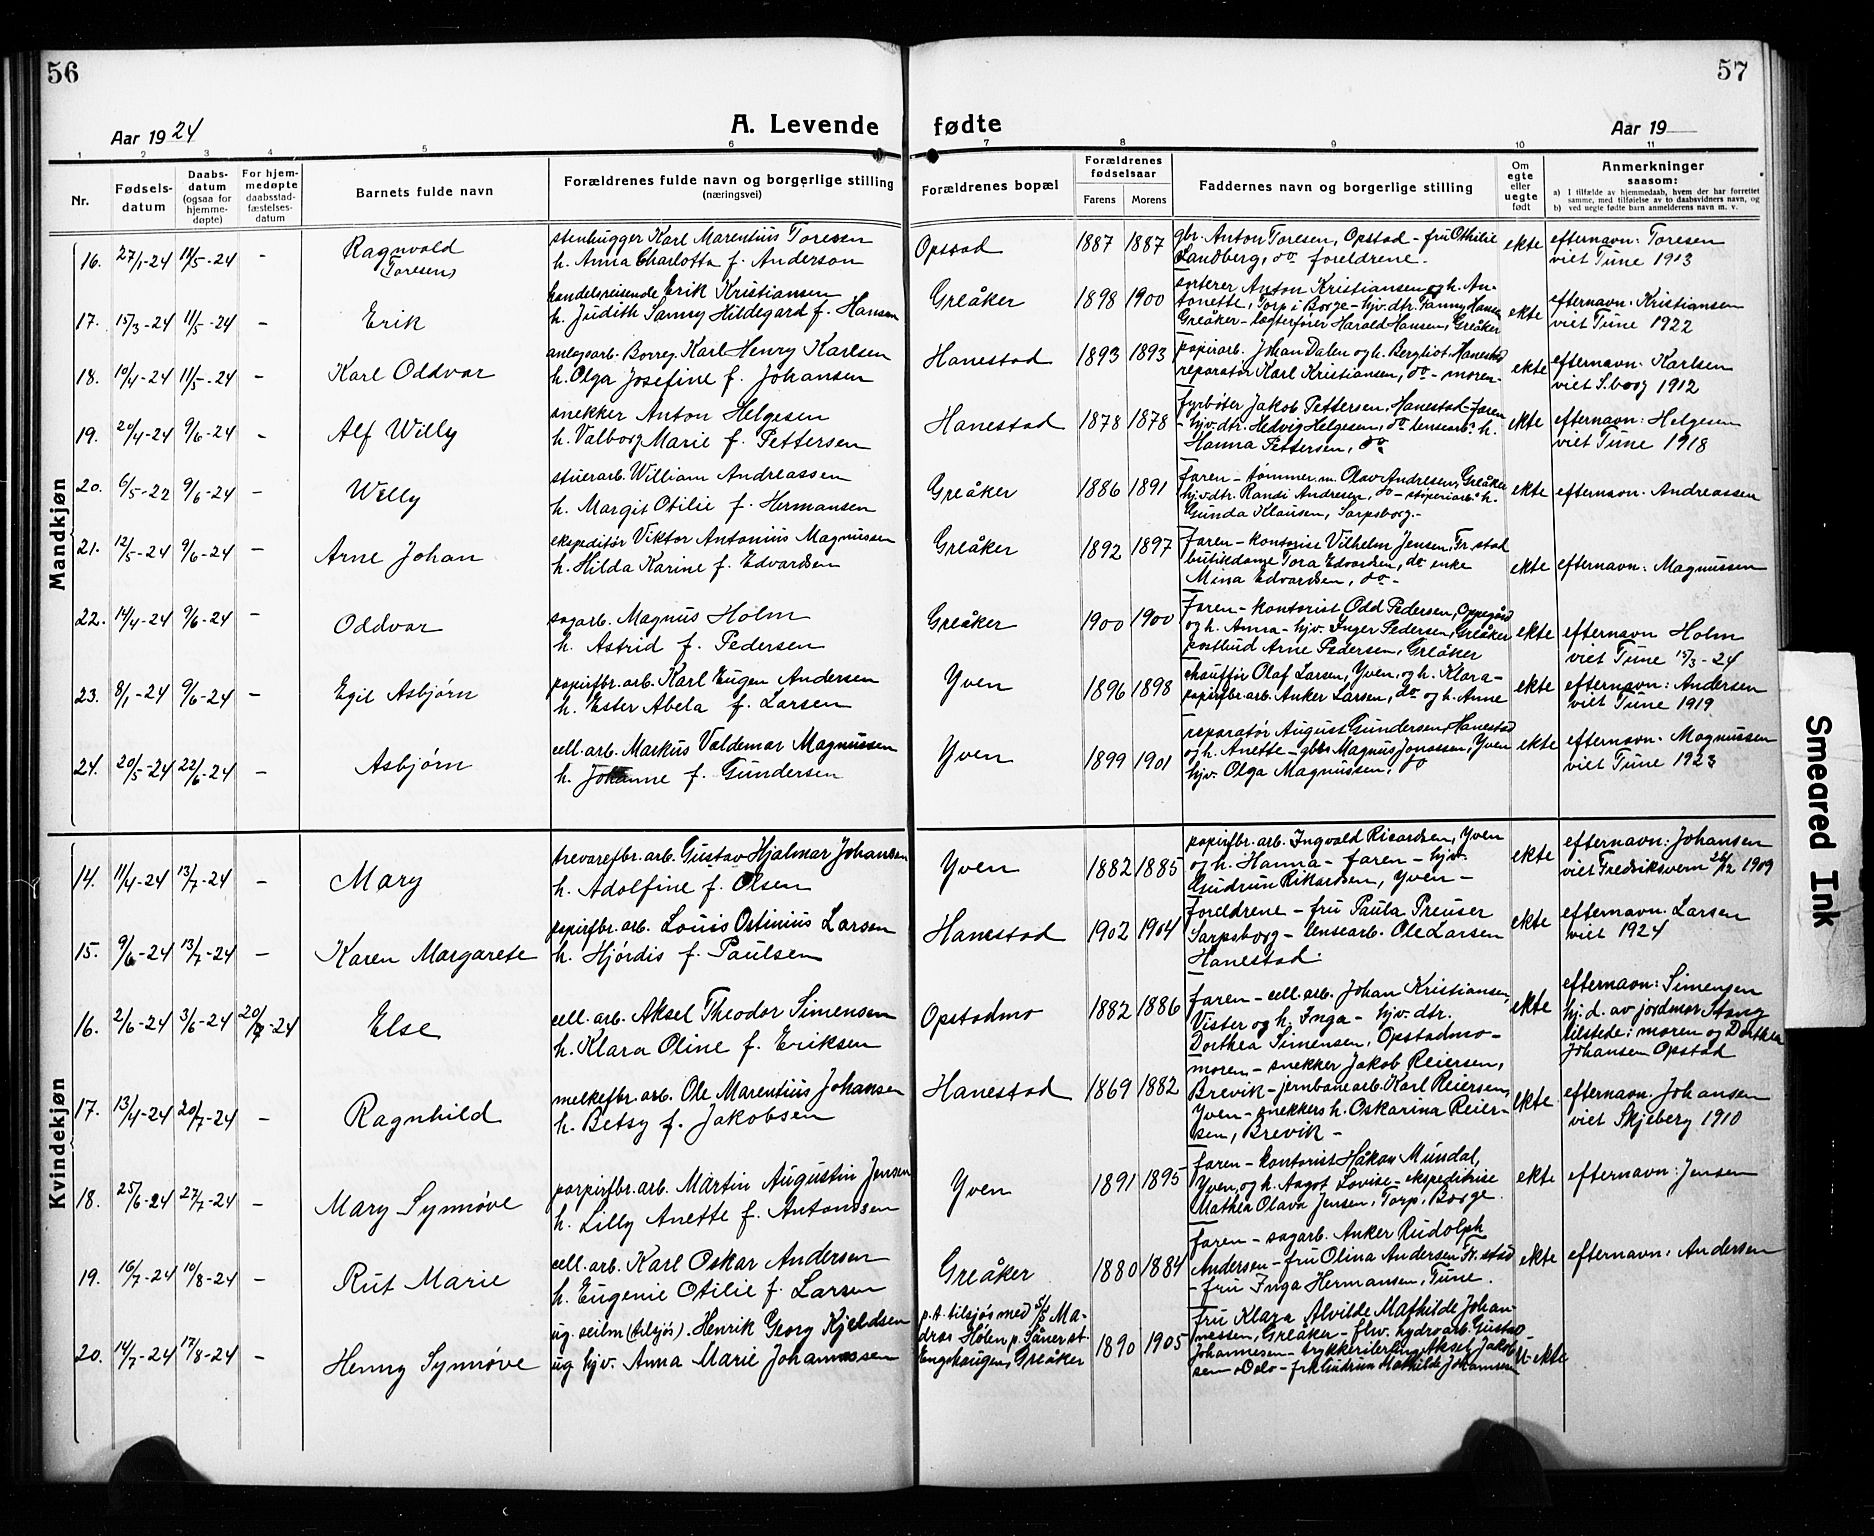 56
57
A. Levende fødte
Aar 1924
Aar 19
1 2 3 4 5 6 7 8 9 10 11
Nr.
Fødsels-
datum
Daabs-
datum
(ogsaa for
hjemme-
døpte)
For hjem-
medøpte
daabsstad-
fæstelses-
datum
Barnets fulde navn
Forældrenes fulde navn og borgerlige stilling
(næringsvei)
Forældrenes bopæl
Forældrenes
fødselsaar
Farens Morens
Faddernes navn og borgerlige stilling
Om
egte
eller
uegte
født
Anmerkninger
saasom:
a) I tilfælde av hjemmedaab, hvem der har forrettet
samme, med tilføielse av to daabsvidners navn, og
b) ved uegte fødte barn anmelderens navn m. v.
Mandkjøn
16. 27/1-24 11/5-24 -
Ragnvald
(Toresen)
stenhugger Karl Marentius Toresen
h. Anna Charlotta f. Anderson
Opstad 1887 1887
gbr. Anton Toresen, Opstad - fru Othilie
Sandberg, do foreldrene.
ekte
efternavn: Toresen
viet Tune 1913
17. 15/3-24 11/5-24 -
Erik
handelsreisende Erik Kristiansen
h. Judith Sanny Hildegard f. Hansen
Greåker 1898 1900
sorterer Anton Kristiansen og h. An-
tonette, Torp i Borge - hjv. dtr. Fanny Hansen
Greåker - lægterfører Harald Hansen, Greåker
ekte
efternavn: Kristiansen
viet Tune 1922
18. 10/4-24 11/5-24 -
Karl Oddvar
anlegsarb. Borreg. Karl Henry Karlsen
h. Olga Josefine f. Johansen
Hanestad 1893 1893
papirarb. Johan Dalen og h. Bergliot Hanestad
reparatør Karl Kristiansen, do - moren-
ekte
efternavn: Karlsen
viet S.borg 1912
19. 20/4-24 9/6-24 -
Alf Willy
snekker Anton Helgesen
h. Valborg Marie f. Pettersen
Hanestad 1878 1878
fyrbøter Jakob Pettersen, Hanestad - faren
- hjv. dtr. Hedvig Helgesen, do lensearb.s h.
Hanna Pettersen, do
ekte
efternavn: Helgesen
viet Tune 1918
20. 6/5-22 9/6-24 -
Willy
stuerarb. William Andreassen
h. Margit Otilie f. Hermansen
Greåker 1886 1891
faren - tømmer.m. Olav Andresen, Greåker
hjv. dtr. Randi Andresen, do - støperiarb.s h.
Gunda Klausen, Sarpsborg.-
ekte
efternavn: Andreassen
21. 12/5-24 9/6-24 -
Arne Johan
ekspeditør Viktor Antonius Magnussen
h. Hilda Karine f. Edvardsen
Greåker 1892 1897
faren - kontorise Vilhelm Jensen, Fr.stad
butikdame Tora Edvardsen, do enke
Mina Edvardsen, do -
ekte
efternavn: Magnussen
22. 14/4-24 9/6-24 -
Oddvar
sagarb. Magnus Holm
h. Astrid f. Pedersen
Greåker 1900 1900
Faren - kontorist Odd Pedersen, Oppegård
og h. Anna - hjv. Inger Pedersen, Greåker
postbud Arne Pedersen, Greåker
ekte
efternavn Holm
viet Tune 15/3-24
23. 8/1-24 9/6-24 -
Egil Asbjørn
papirfbr.arb. Karl Eugen Andersen
h. Ester Abela f. Larsen
Yven 1896 1898
chauffør Olaf Larsen, Yven, og h. Klara -
papirfbr.arb. Anker Larsen, do og h. Anne
ekte
efternavn: Andersen
viet Tune 1919
24. 20/5-24 22/6-24 -
Asbjørn
cell. arb. Markus Valdemar Magnussen
h. Johanne f. Gundersen
Yven 1899 1901
reparatør August Gundersen, Hanestad
og h. Anette - gbr. Magnus Jonassen, Yven
hjv. Olga Magnussen, do
ekte
efternavn: Magnussen
viet Tune 1923
Kvindekjøn
14. 11/4-24 13/7-24 -
Mary
trevarefbr.arb. Gustav Hjalmar Johansen
h. Adolfine f. Olsen
Yven 1882 1885
papirfbr. arb. Ingvald Ricardsen, Yven
og h. Hanna - faren - hjv.
Gudrun Rikardsen, Yven -
ekte
efternavn: Johansen
viet Fredriksvern 26/12 1909
15. 9/6-24 13/7-24 -
Karen Margarete
papirfbr. arb. Louis Ostinius Larsen
h. Hjørdis f. Paulsen
Hanestad 1902 1904
foreldrene - fru Paula Preuser
Sarpsborg - lensearb. Ole Larsen
Hanestad.
ekte
efternavn: Larsen
viet 1924
16. 2/6-24 3/6-24 20/7-24
Else
cell. arb. Aksel Theodor Simensen
h. Klara Oline f. Eriksen
Opstadmo 1882 1886
faren - cell. arb. Johan Kristiansen,
Vister og h. Inga - hjv. dtr.
Dorthea Simensen, Opstadmo-
ekte
efternavn: Simensen
hj. d. av jordmor Stang
tilstede: moren og Dorthea
Johansen Opstad
17. 13/4-24 20/7-24 -
Ragnhild
melkefbr. arb. Ole Marentius Johansen
h. Betsy f. Jakobsen
Hanestad 1869 1882
moren - snekker Jakob Reiersen,
Brevik - jernbanearb. Karl Reiersen,
Yven - snekkers h. Oskarina Reier-
sen, Brevik -
ekte
efternavn: Johansen
viet Skjeberg 1910
18. 25/6-24 27/7-24 -
Mary Synnøve
papirfbr. arb. Martin Augustin Jensen
h. Lilly Anette f. Antonsen
Yven 1891 1895
faren - kontorist Håkon Mundal,
Yven, og h. Aagot Lovise - ekspeditrise
Mathea Olava Jensen, Torp, Borge.
ekte
efternavn: Jensen
19. 16/7-24 10/8-24 -
Rut Marie
cell. arb. Karl Oskar Andersen
h. Eugenie Otilie f. Larsen
Greåker 1880 1884
faren - sagarb. Anker Rudolph
Andersen - fru Olina Andersen Fr.stad
- fru Inga Hermansen, Tune.
ekte
efternavn: Andersen
20. 14/7-24 17/8-24 -
Henny Synnøve
ug. seilm (tilsjøs). Henrik Georg Kjeldsen
ug hjv. Anna Marie Johannessen
p.t. tilsjøs med S/S Ma-
dras Hølen p. Såner st.
Engehaugen, Greåker
1890 1905
Fru Klara Alvilde Mathilde Johan-
nessen, Greåker - flw. hydroarb. Gustav
Johannesen - trykkerilærling Aksel Jakob-
sen Oslo - frk Gudrun Mathilde Johannesen
u-ekte
Smeared Ink